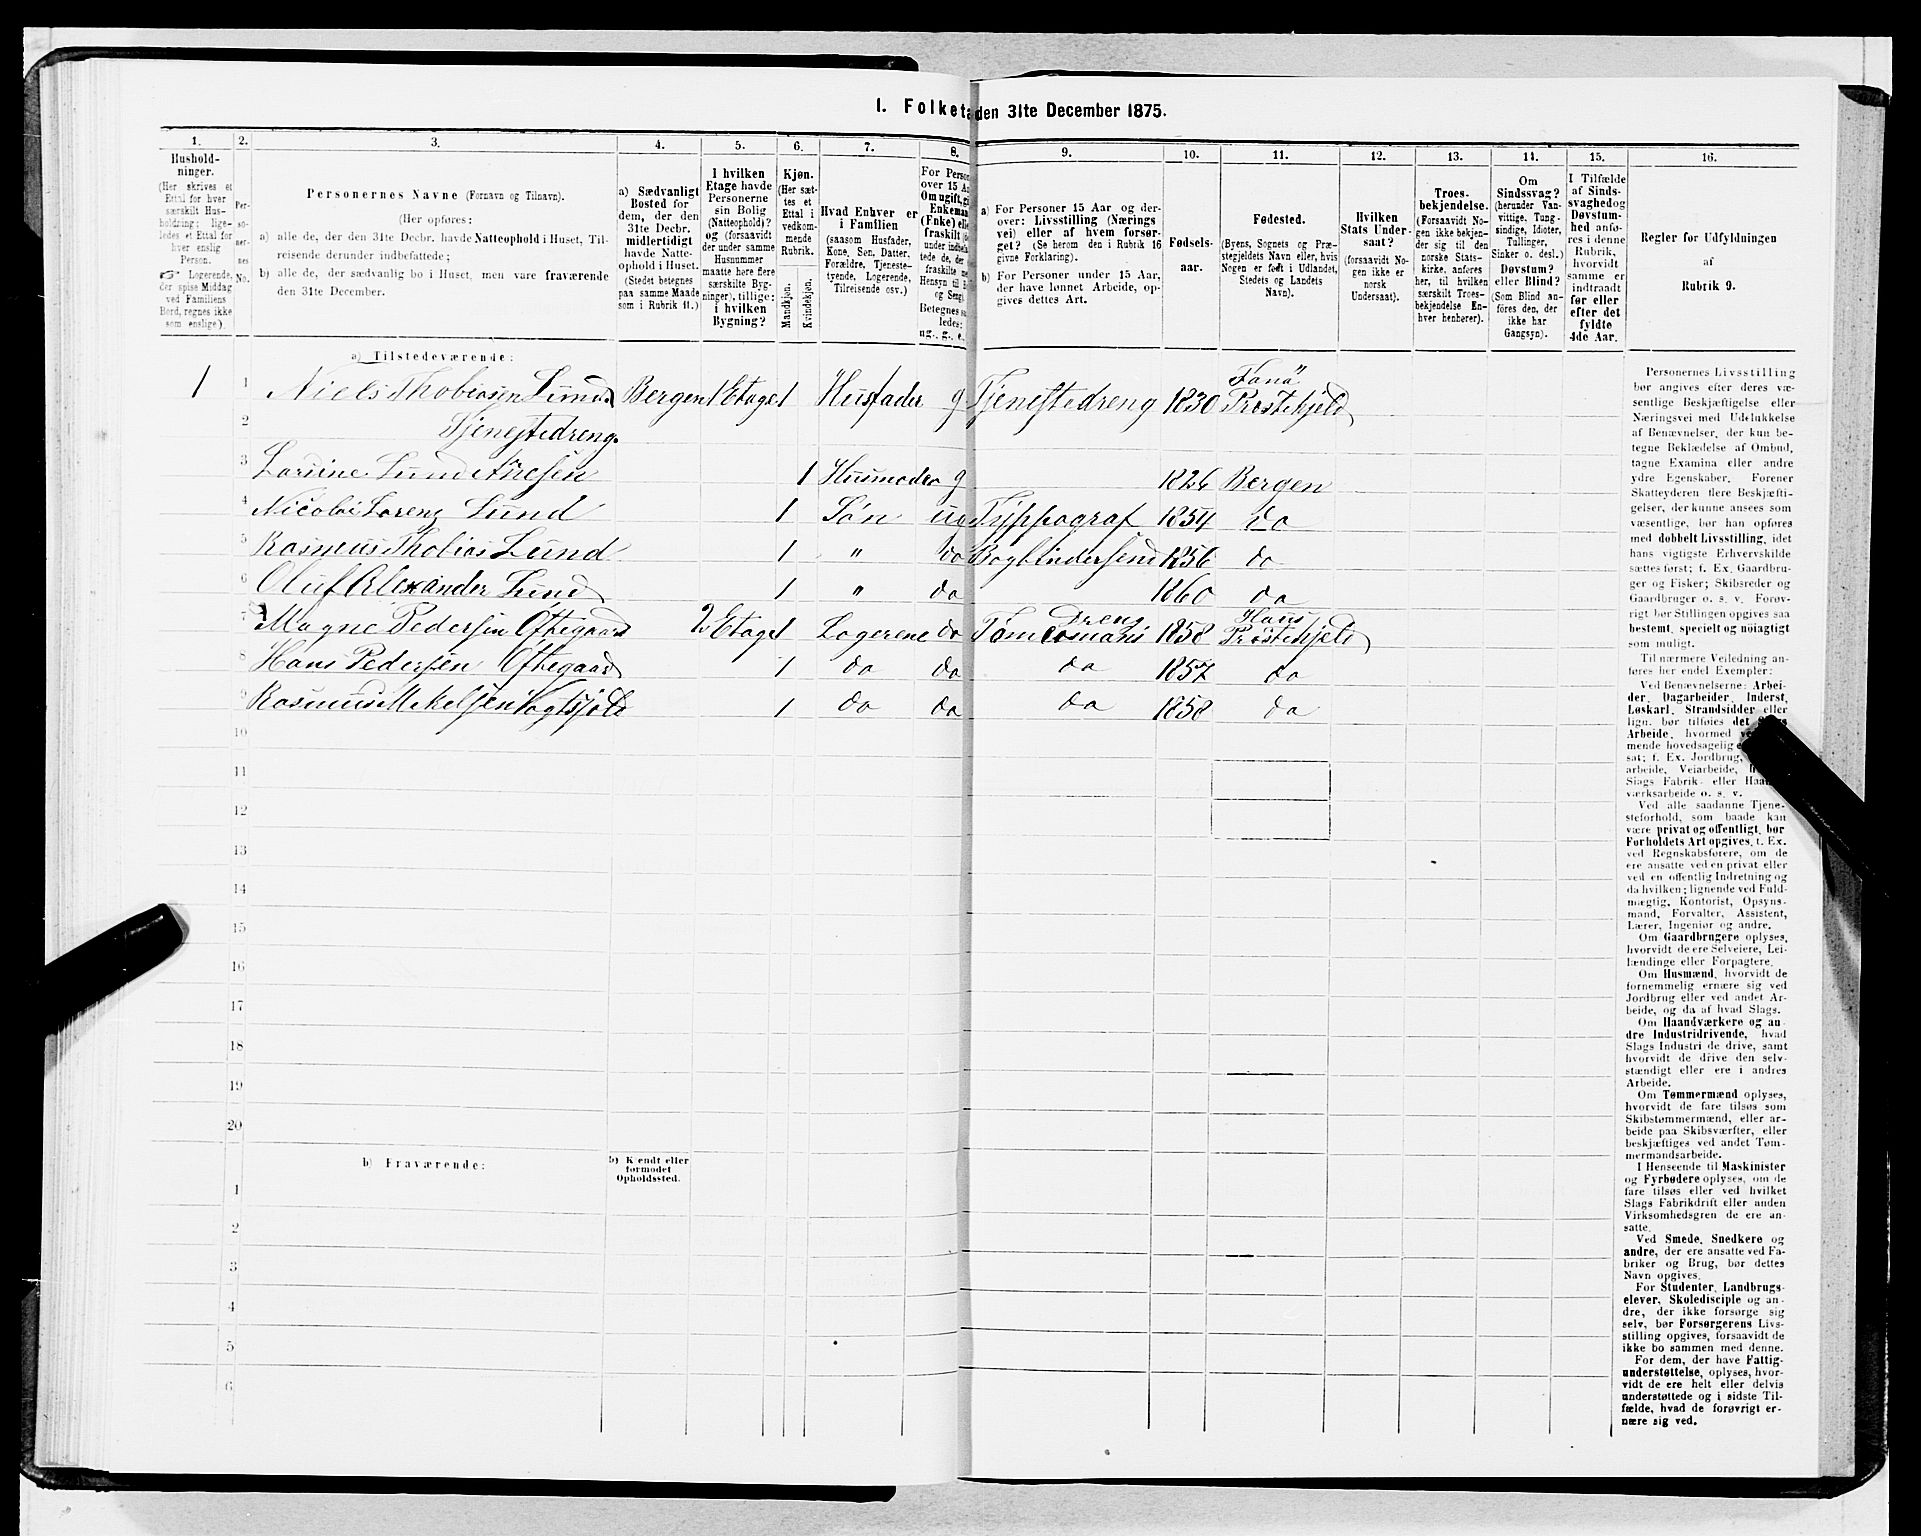 I. Folketæ
den 31te December 1875.
1.
Hushold-
ninger.
(Her skrives et
Ettal for hver
særskilt Hus-
holdning; lige-
ledes et Ettal for
hver enslig
Person.
☞ Logerende,
der spise Middag
ved Familiens
Bord, regnes ikke
som enslige).
2.
Per-
so-
ner-
nes
No.
3.
Personernes Navne (Fornavn og Tilnavn).
(Her opføres:
a) alle de, der den 31te Decbr. havde Natteophold i Huset, Til-
reisende derunder indbefattede;
b) alle de, der sædvanlig bo i Huset, men vare fraværende
den 31te December.
4.
a) Sædvanligt
Bosted for
dem, der den
31te Decbr.
midlertidigt
havde Natte-
ophold i Huset.
(Stedet betegnes
paa samme Maade
som i Rubrik 11.)
5.
I hvilken
Etage havde
Personerne
sin Bolig
(Natteophold)?
og (forsaavidt
der under samme
Husnummer
maatte høre flere
særskilte Byg-
ninger), tillige:
i hvilken
Bygning?
6.
Kjøn.
(Her sæt-
tes et
Ettal i
vedkom-
mende
Rubrik.
Mandkjøn.
Kvindekjøn.
7.
Hvad Enhver er
i Familien
(saasom Husfader,
Kone, Søn, Datter,
Forældre, Tjeneste-
tyende, Logerende,
Tilreisende osv.)
8.
For Person
over 15 Aa
Om ugift, gi
Enkeman
(Enke) elle
fraskilt
under indbe
tede de, der
fraskilte
Hensyn til B
og Seng)
Betegnes
ledes:
ug., g., e.,
9.
a) For Personer 15 Aar og der-
over: Livsstilling (Nærings
vei) eller af hvem forsør-
get? (Se herom den i Rubrik 16
givne Forklaring).
b) For Personer under 15 Aar,
der have lønnet Arbeide, op-
gives dettes Art.
10.
Fødsels-
aar.
11.
Fødested.
(Byens, Sognets og Præ-
stegjeldets Navn eller, hvis
Nogen er født i Udlandet,
Stedets og Landets
Navn).
12.
Hvilken
Stats Under-
saat?
(forsaavidt No-
gen ikke er
norsk
Undersaat).
13.
Troes-
bekjendelse.
(Forsaavidt No-
gen ikke bekjen-
der sig til den
norske Stats-
kirke, anføres
her, til hvilken
særskilt Troes-
bekjendelse En-
hver henhører).
14.
Om
Sindssvag?
(herunder Van-
vittige, Tung-
sindige, Idioter,
Tullinger,
Sinker o. desl.)
Døvstum?
eller Blind?
(Som Blind an-
føres den, der
ikke har
Gangsyn).
15.
I Tilfælde
af Sinds-
svaghed og
Døvstum-
hed anfø-
res i denne
Rubrik,
hvorvidt
samme er
indtraadt
før eller
efter det
fyldte
4de Aar.
16.
Regler for Udfyldningen
af
Rubrik 9.
a) Tilstedeværende:
1 1 Niels Thobiasen Lund Bergen 1 Etage 1 Husfader g Tjenestedreng 1830 Fanø Præstekjeld
2 Tjenestedreng
3 Lund 1 Husmoder g 1826 Bergen
4 Nicolai Lorenz Lund 1 Søn Typpograf 1854 do
5 Rasmus Thobias Lund 1 " do Bogbindersvend 1856 do
6 Oluf Alexander Lund 1 " do 1860 do
7 Magne Pedersen Oftegaard 2 Etage 1 Logerene do Tømermans Dreng 1858 Haus Præstekjeld
8 Hans Pedersen Oftegaard 1 do do do 1857 do
9 Rasmus Mikelsen 1 do do do 1858 do
10
11
12
13
14
15
16
17
18
19
20
b) Fraværende:
b) Kjendt eller
formodet
Opholdssted.
1
2
3
4
5
6
Personernes Livsstilling
bør angives efter deres væ-
sentlige Beskjæftigelse eller
Næringsvei med Udelukkelse
af Benævnelser, der kun be-
tegne Beklædelse af Ombud,
tagne Examina eller andre
ydre Egenskaber. Forener
Skatteyderen flere Beskjæfti-
gelser, der kunne ansees som
væsentlige, bør han opføres
med dobbelt Livsstilling, idet
hans vigtigste Erhvervskilde
sættes først; f. Ex. Gaardbru-
ger og Fisker; Skibsreder og
Gaardbruger o. s. v. Forøv-
rigt bør Stillingen opgives saa
bestemt, specielt og nøiagtigt
som muligt.
Til nærmere Veiledning an-
føres her endel Exempler:
Ved Benævnelserne: Arbei-
der, Dagarbeider, Inderst,
Løskarl, Strandsidder eller
lign. bør tilføies det Slags
Arbeide, hvormed ved
mende hovedsagelig e
sat; f. Ex. Jordbrug,
arbeide, Veiarbeide,
Slags Fabrik- eller Haand-
værksarbeide o. s. v.
Ved alle saadanne Tjene-
steforhold, som baade kan
være privat og offentligt, bør
Forholdets Art opgives, f. Ex.
ved Regnskabsførere, om de
ere ansatte ved en privat eller
ved en offentlig Indretning og
da hvilken; lignende ved Fuld-
mægtig, Kontorist, Opsyns-
mand, Forvalter, Assistent,
Lærer, Ingeniør og andre.
Om Gaardbrugere oplyses,
hvorvidt de ere Selveiere, Lei-
lændinge eller Forpagtere.
Om Husmænd, hvorvidt de
fornemmelig ernære sig ved
Jordbrug eller ved andet Ar-
beide, og da af hvad Slags.
Om Haandværkere og an-
dre Industridrivende, hvad
Slags Industri de drive, samt
hvorvidt de drive den selv-
stændigt eller ere i andres
Arbeide.
Om Tømmermænd oplyses,
hvorvidt de fare tilsøs som
Skibstømmermænd, eller ar-
beide paa Skibsværfter, eller
beskjæftiges ved andet Tøm-
mermandsarbeide.
I Henseende til Maskinister
og Fyrbødere oplyses, om de
fare tilsøs eller ved hvilket
Slags Fabrikdrift eller anden
Virksomhedsgren de ere an-
satte.
Ved Smede, Snedkere og
andre, der ere ansatte ved Fa-
briker og Brug, bør dettes
Navn opgives.
For Studenter, Landbrugs-
elever, Skoledisciple og an-
dre, der ikke forsørge sig
selv, bør Forsørgerens Livs-
stilling opgives, forsaavidt de
ikke bo sammen med denne.
For dem, der have Fattig-
understøttelse, oplyses, hvor-
vidt de ere helt eller delvis
understøttede og i sidste Til-
fælde, hvad de forøvrigt er-
nære sig ved.